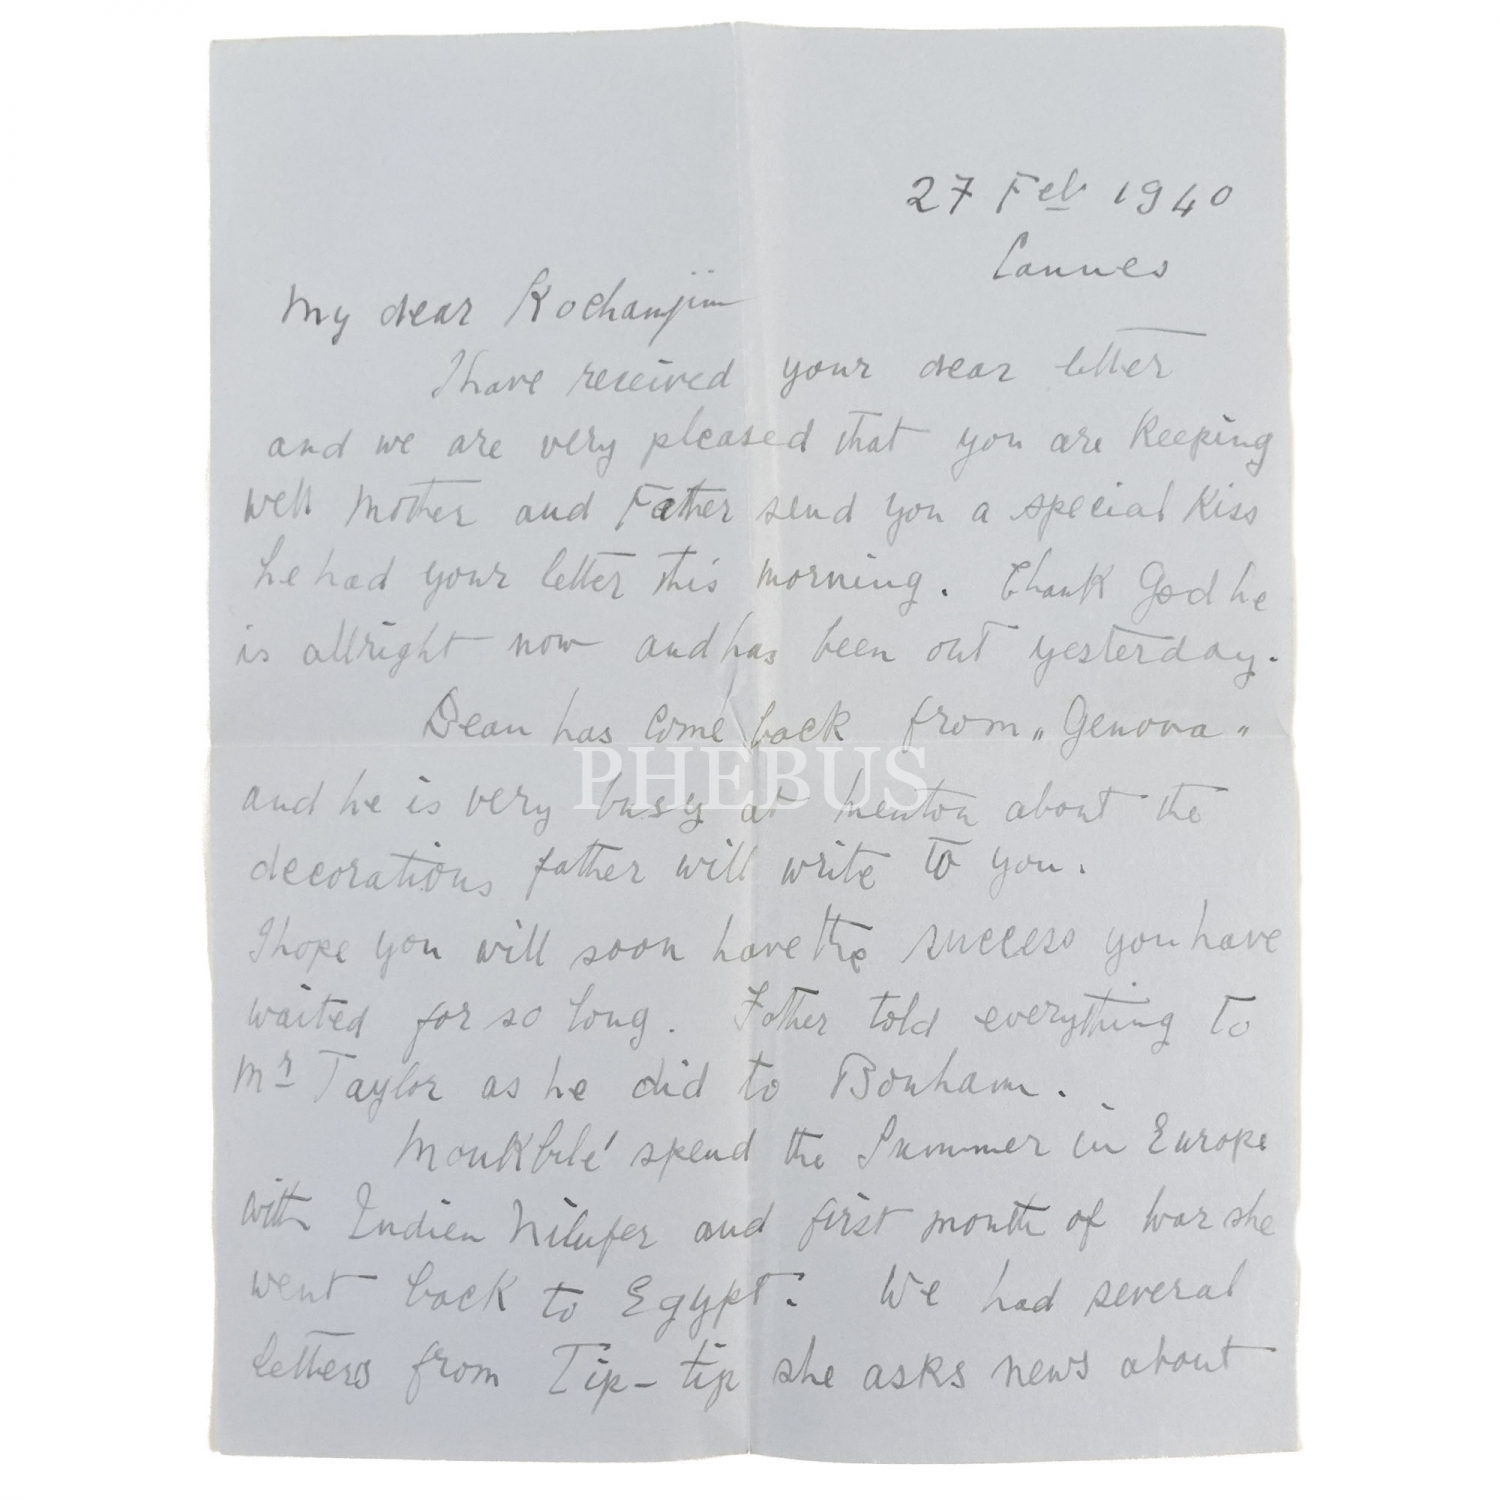 27 Feb 1940
Cannes
My dear Rochanjim
I have received your dear letter
and we are very pleased that you are Keeping
well Mother and Father send you a special Kiss
he had your letter this morning. Thank God he
is allright now and has been out yesterday.
Dean has come back from „Genova"
PHEBUS
and he is very busy at Menton about the
decorations father will write to you.
I hope you will soon have the success you have
waited for so long. Father told everything to
Mr Taylor as he did to Bonham.
MouKbilé spend the Summer in Europe
with Indien Nilufer and first month of War she
went back to Egypt. We had several
letters from Tip-tip she asks news about